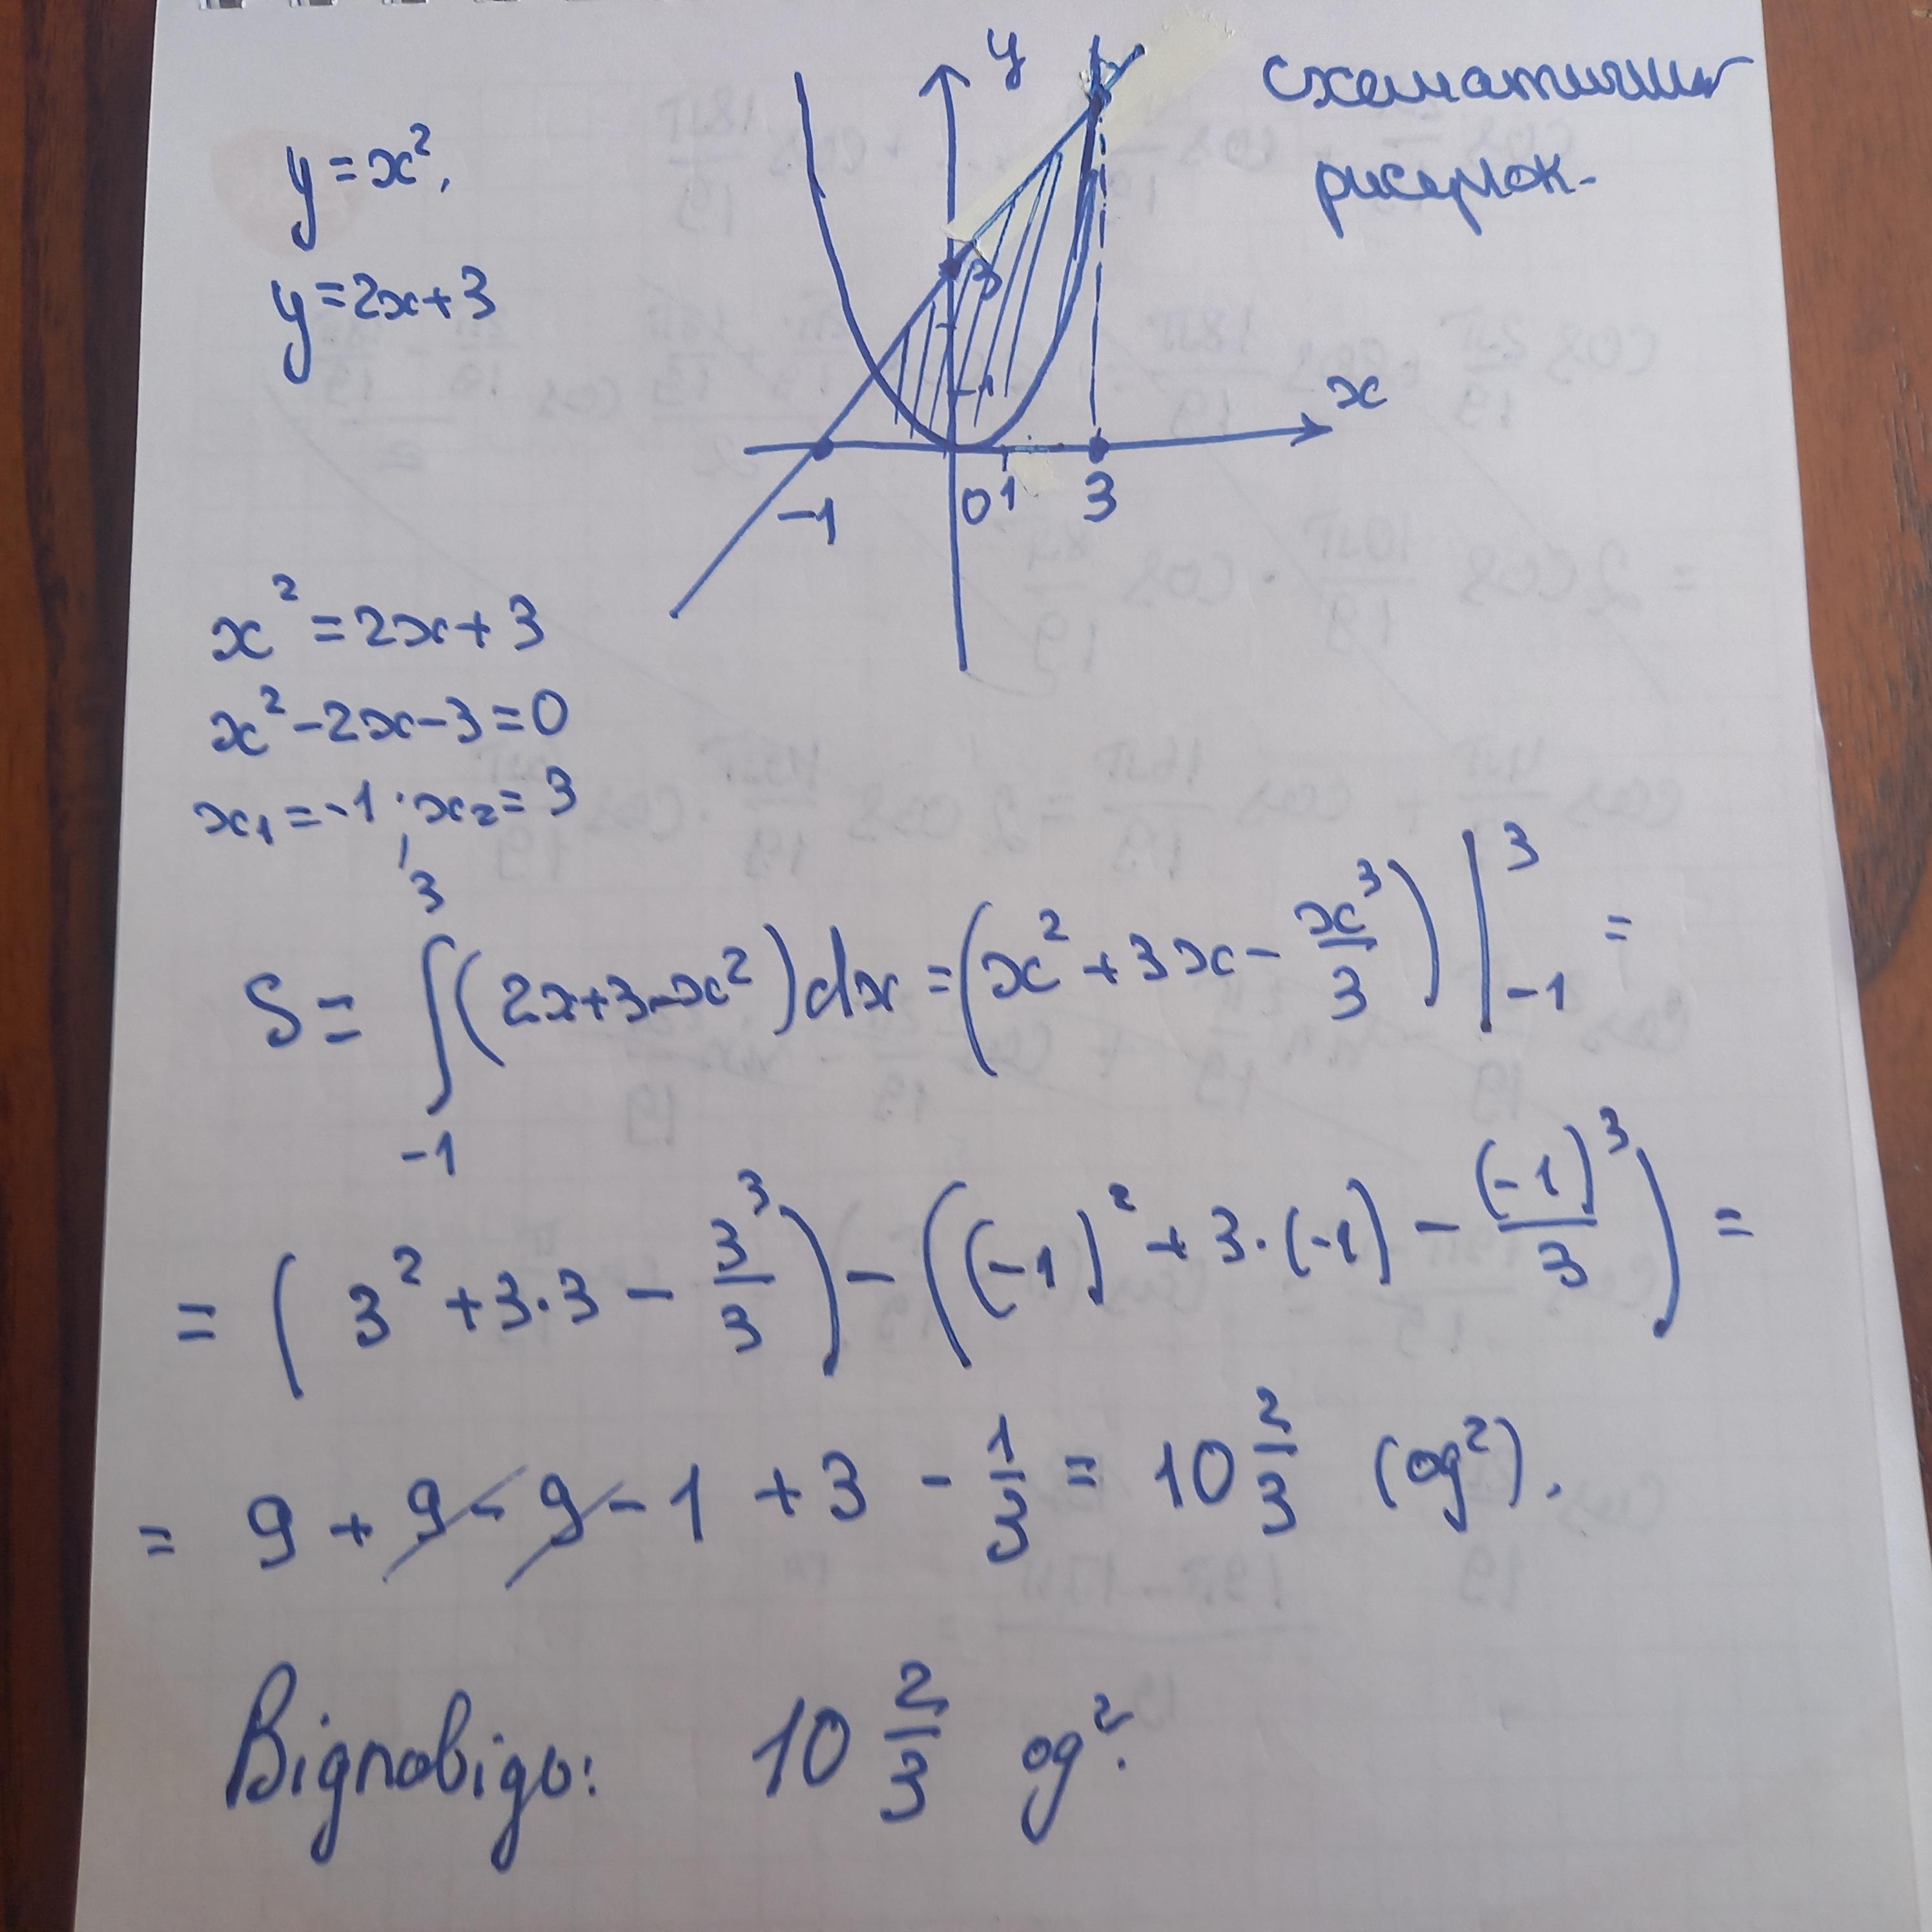 y = x²,
y = 2x + 3
схематичний
рисунок.
y
3
1
x
-1 0 1 3
x² = 2x + 3
x² - 2x - 3 = 0
x₁ = -1; x₂ = 3
S = ∫₋₁³ (2x + 3 - x²) dx = (x² + 3x - x³/3) |₋₁³ =
= (3² + 3·3 - 3³/3) - ((-1)² + 3·(-1) - (-1)³/3) =
= 9 + 9 - 9 - 1 + 3 - 1/3 = 10 2/3 (од²).
Відповідь: 10 2/3 од².